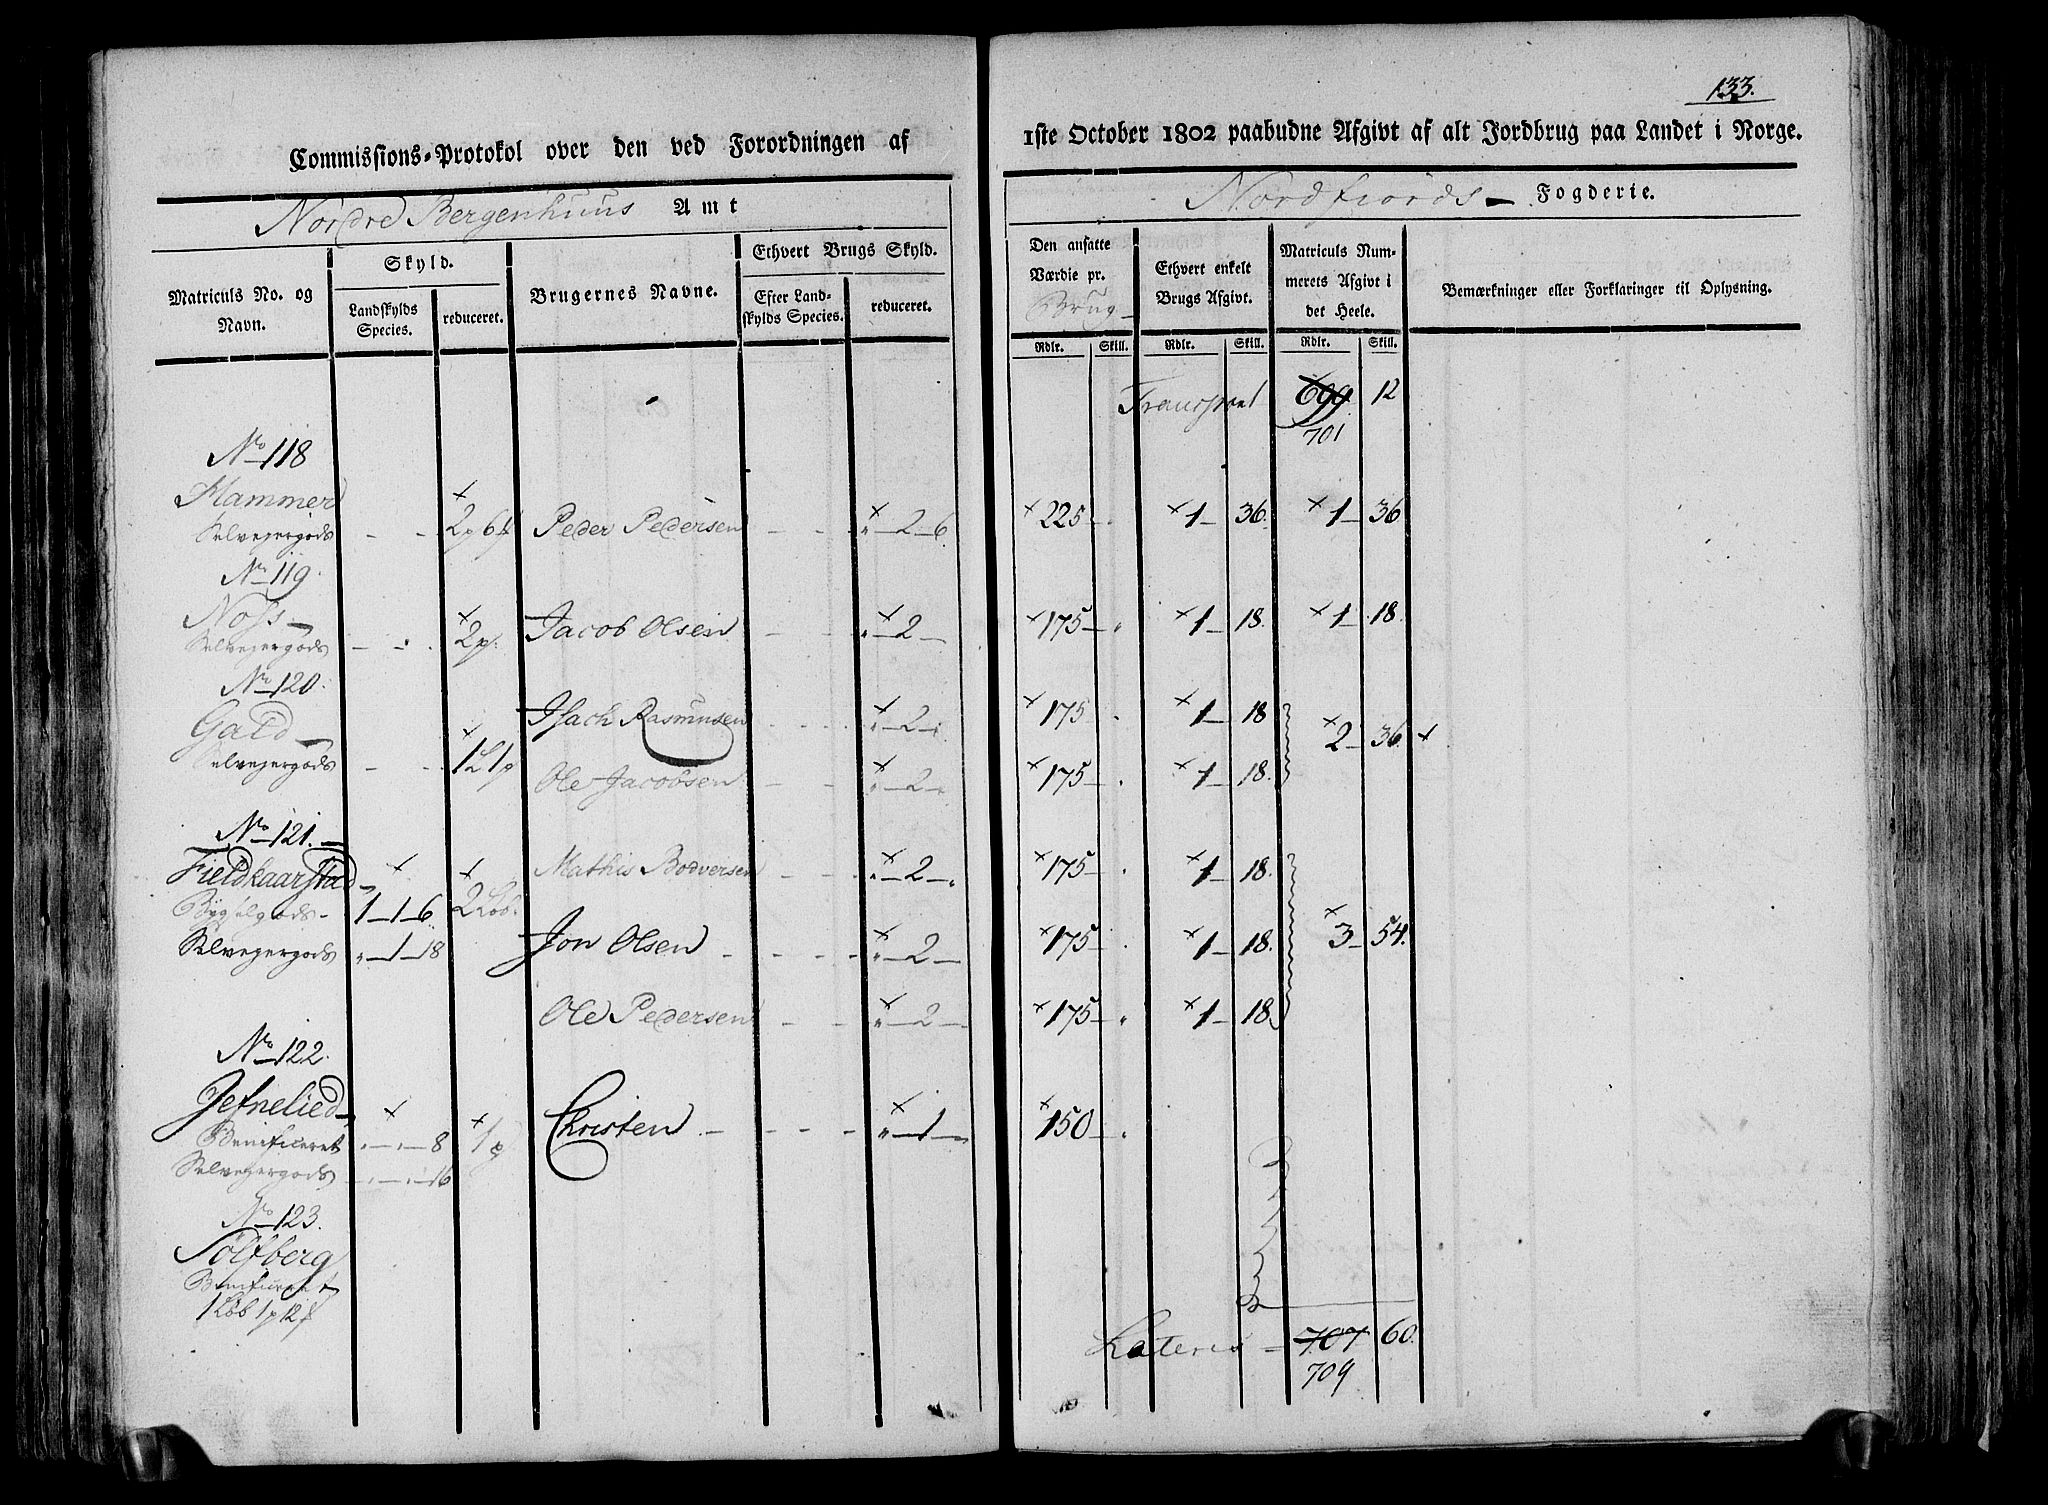 133.
Commissions-Protokol over den ved Forordningen af 1ste October 1802 paabudne Afgivt af alt Jordbrug paa Landet i Norge.
Nordre Bergenhuus Amt
Nordfiords Fogderie.
Matriculs No. og Navn.
Skyld.
Landskylds Species.
reduceret.
Brugernes Navne.
Ethvert Brugs Skyld.
Efter Landskylds Species.
reduceret.
Den ansatte Værdie pr. Brug
Ethvert enkelt Brugs Afgivt.
Matriculs Nummerets Afgivt i det Heele.
Bemærkninger eller Forklaringer til Oplysning.
Rdlr. Skill. Rdlr. Skill. Rdlr. Skill.
Transport 699 12
701
No 118
Hammer
Selvejergods 2p 6f Peder Pedersen " 2 6 225 1 36. 1 36
No 119.
Noss
Selvejergods 2p. Jacob Olsen " 2 175 1 18. 1 18.
No 120.
Gald
Selvejergods 1L 1p
Isach Rasmusen " 2 175 1 18 2 36.
Ole Jacobsen " 2 175 1 18.
No 121.
Fieldkaarstad
Bygselgods 1 1 6 2 Løb.
Selvejergods " 1 18
Mathis Bodversen " 2 175 1 18.
Jon Olsen " 2 175 1 18. 3 54.
Ole Pedersen " 2 175 1 18
No 122.
Jefnelied
Benificeret 8 1p Christen " 1 150
Selvejergods 16
No 123.
Solfberg
Benificeret
1 Løb 1p 12f
Lateris 707 60.
709